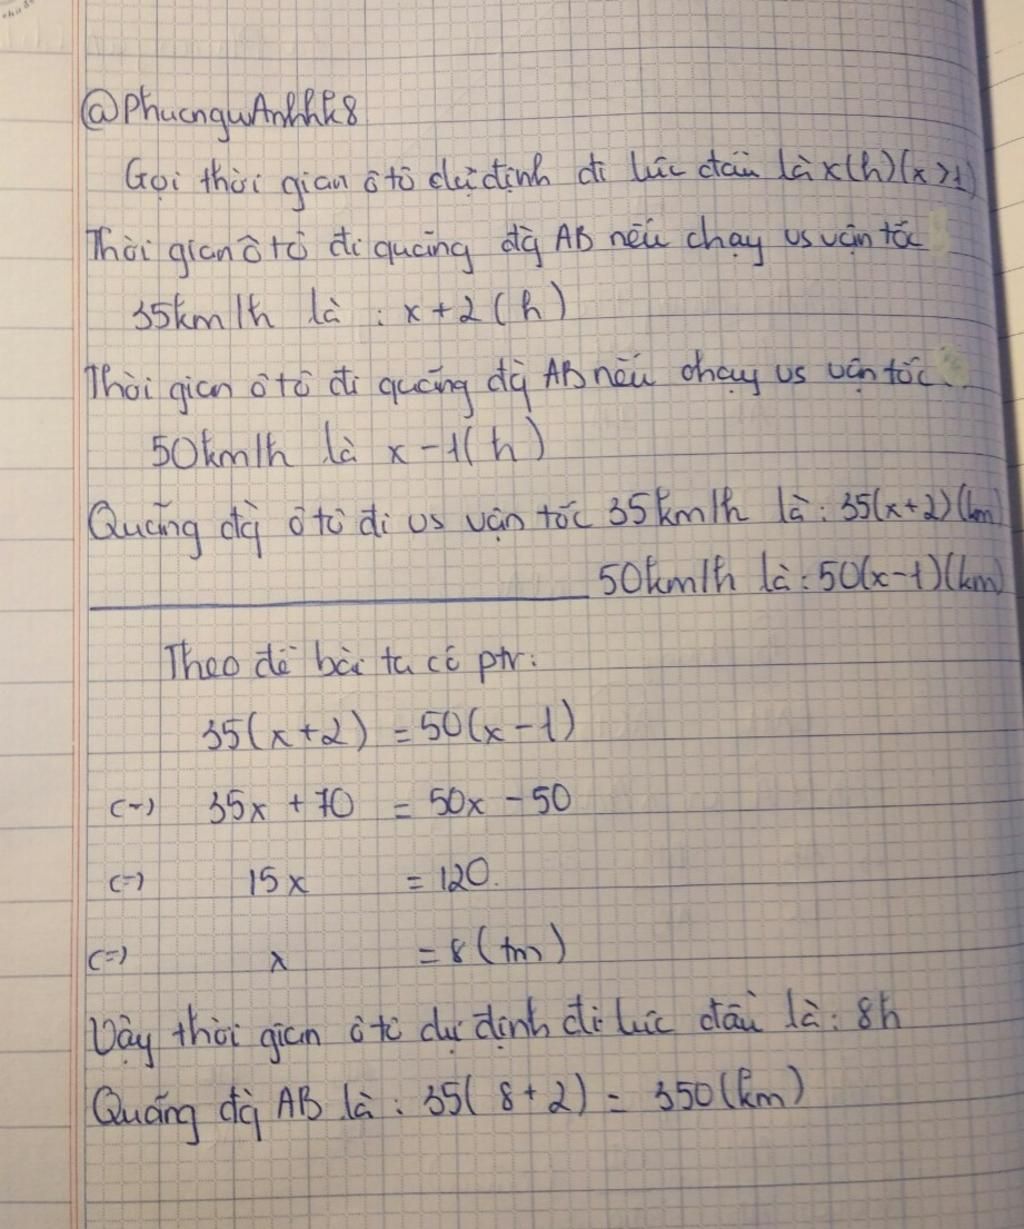 @PhucnguAnhhk8
Gọi thời gian ô tô dự định đi lúc đầu là x(h)(x>1)
Thời gian ô tô đi quãng đg AB nếu chạy vs vận tốc
35km/h là : x+2(h)
Thời gian ô tô đi quãng đg AB nếu chạy vs vận tốc
50km/h là x-1(h)
Quãng đg ô tô đi vs vận tốc 35km/h là: 35(x+2)(km)
50km/h là: 50(x-1)(km)
Theo đề bài ta có ptr:
35(x+2) = 50(x-1)
(=) 35x +70 = 50x -50
(=) 15x = 120.
(=) x = 8(tm)
Vậy thời gian ô tô dự định đi lúc đầu là: 8h
Quãng đg AB là: 35(8+2) = 350(km)